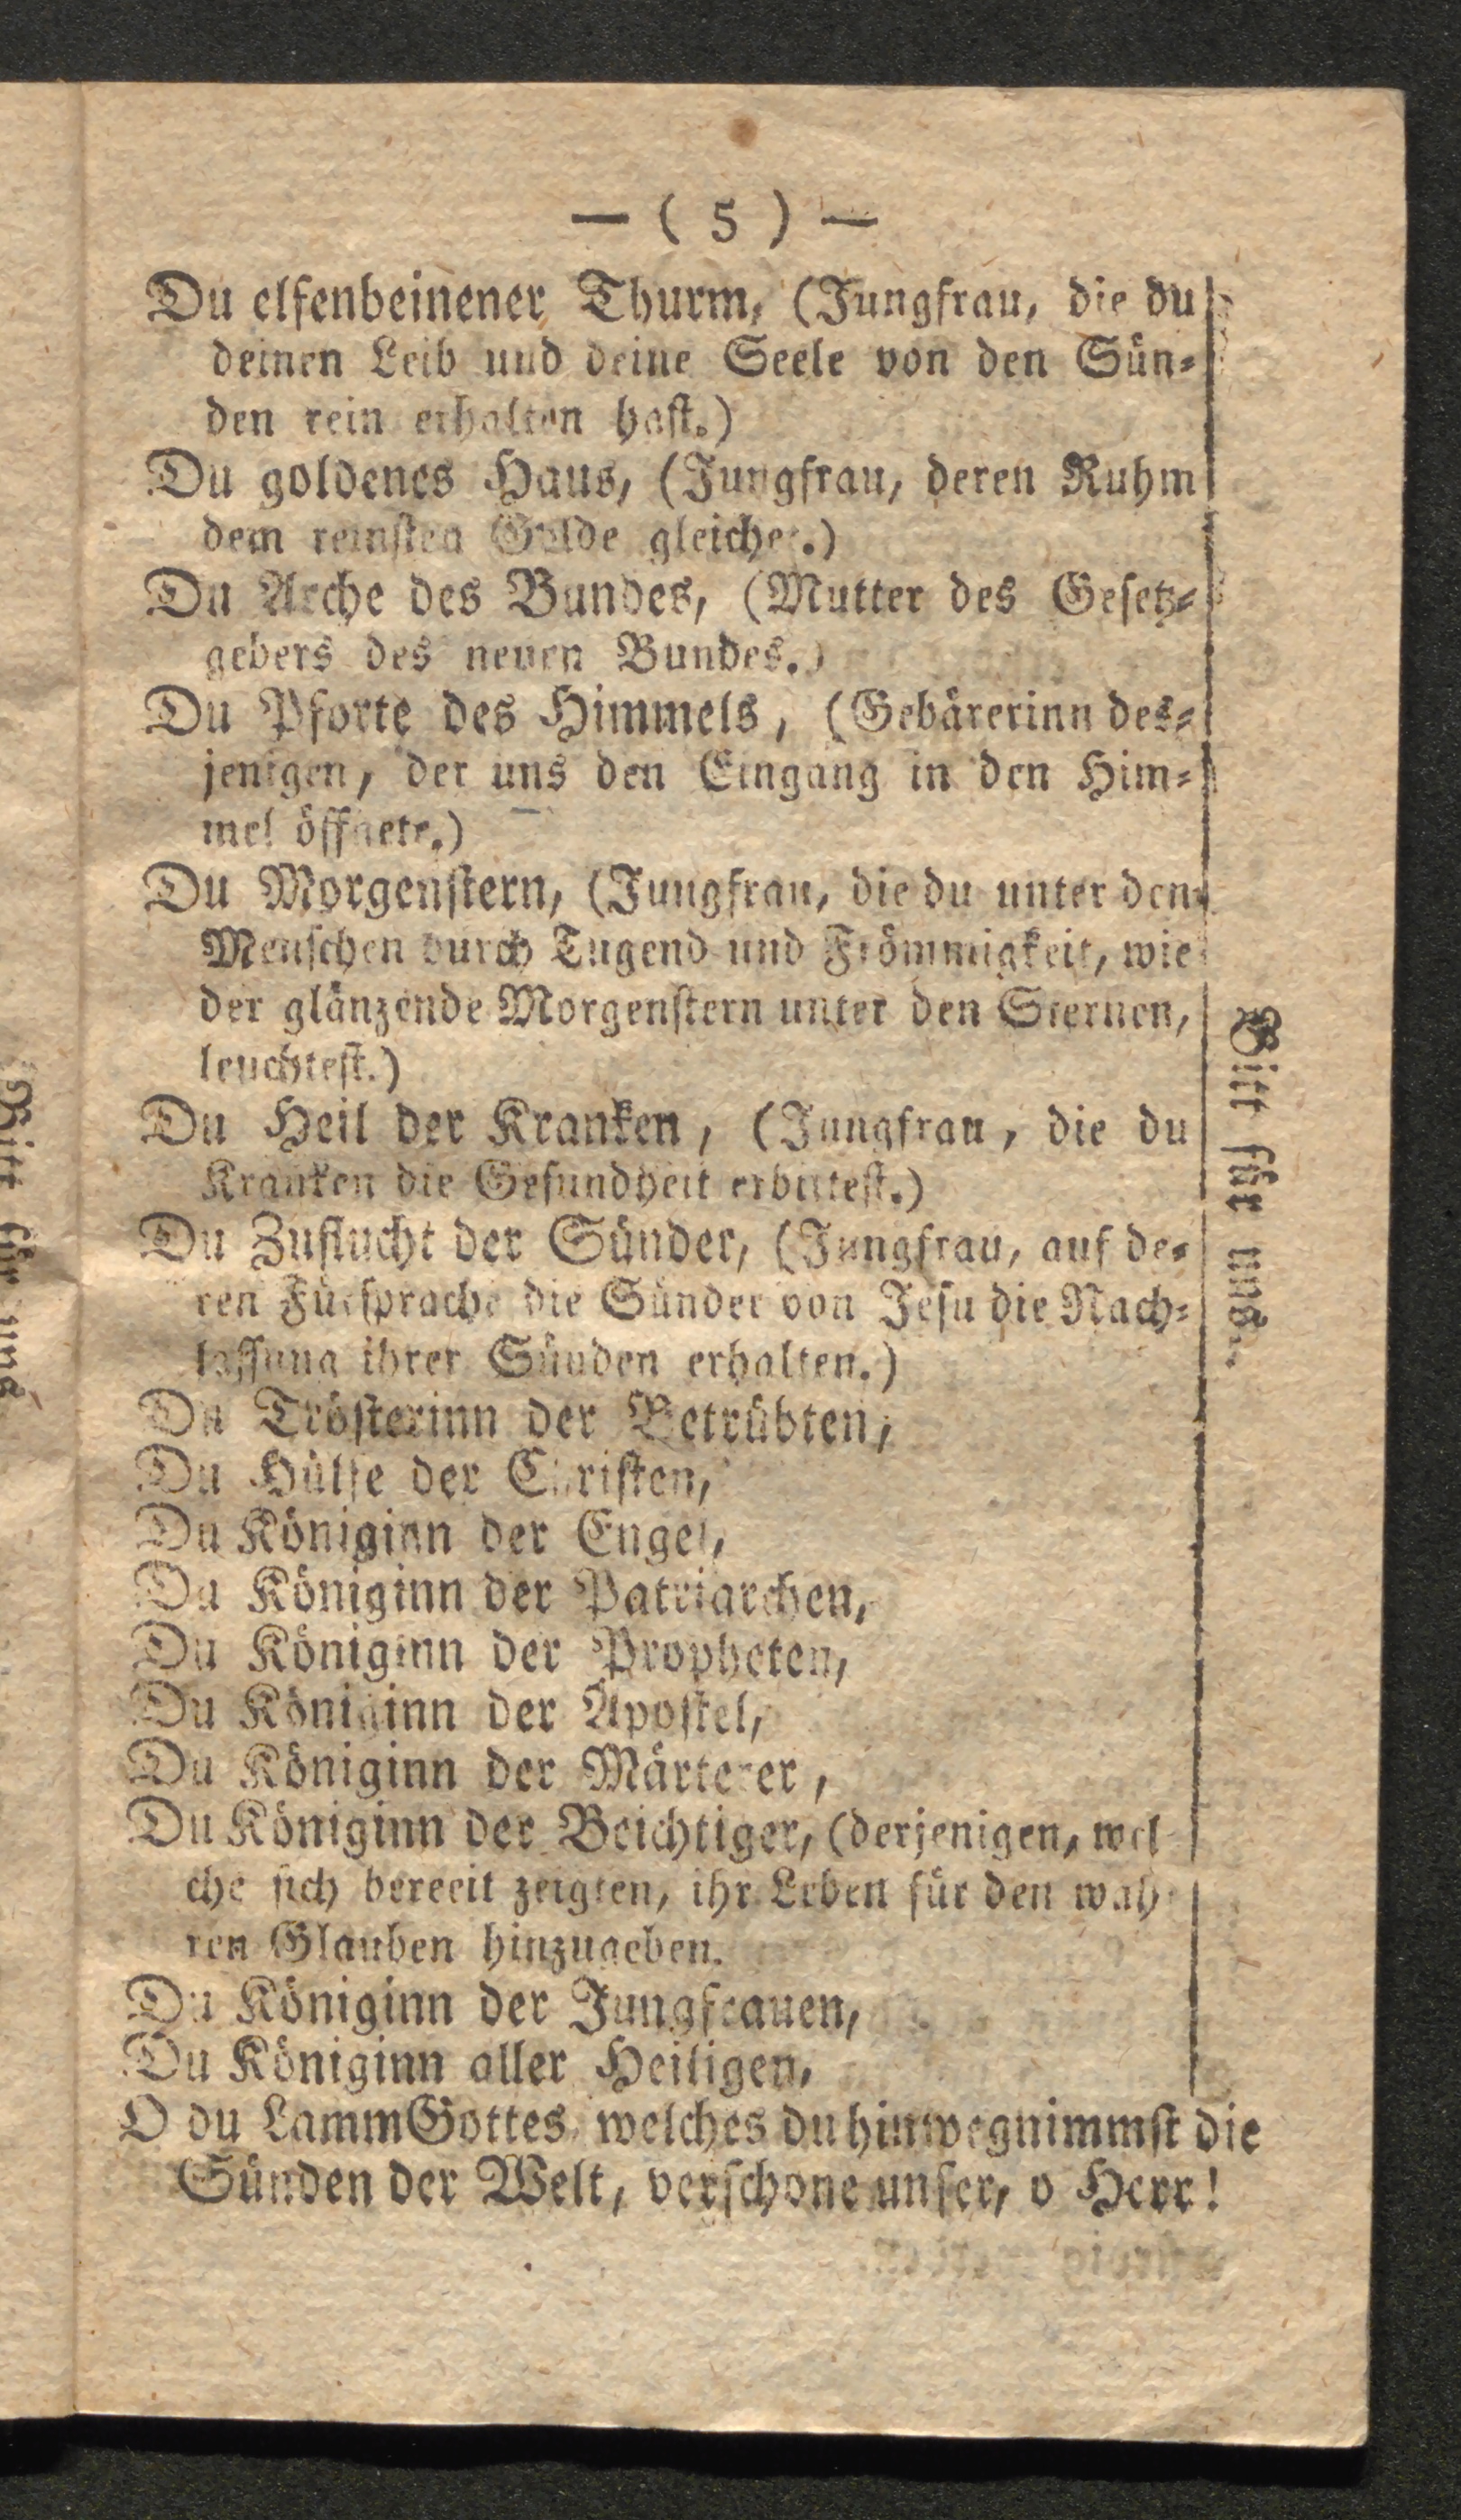 — ( 5 ) —
Du elfenbeinener Thurm, (Jungfrau, die du
deinen Leib und deine Seele von den Sün-
den rein erhalten hast.)
Du goldenes Haus, (Jungfrau, deren Ruhm
dem reinsten Golde gleichet.)
Du Arche des Bundes, (Mutter des Gesetz-
gebers des neuen Bundes.)
Du Pforte des Himmels, (Gebärerinn des-
jenigen, der uns den Eingang in den Him-
mel öffnete.)
Du Morgenstern, (Jungfrau, die du unter den
Menschen durch Tugend und Frömmigkeit, wie
der glänzende Morgenstern unter den Sternen,
leuchtest.)
Du Heil der Kranken, (Jungfrau, die du
Kranken die Gesundheit erbittest.)
Du Zuflucht der Sünder, (Jungfrau, auf de-
ren Fürsprache die Sünder von Jesu die Nach-
lassung ihrer Sünden erhalten.)
Du Trösterinn der Betrübten,
Du Hülfe der Christen,
Du Königinn der Engel,
Du Königinn der Patriarchen,
Du Königinn der Propheten,
Du Königinn der Apostel,
Du Königinn der Märterer,
Du Königinn der Beichtiger, (derjenigen, wel
che sich bereeit zeigten, ihr Leben für den wah
ren Glauben hinzugeben.
Du Königinn der Jungfrauen,
Du Königinn aller Heiligen,
O du Lamm Gottes, welches du hinwegnimmst die
Sünden der Welt, verschone unser, o Herr!
Bitt für uns.
Bitt für uns